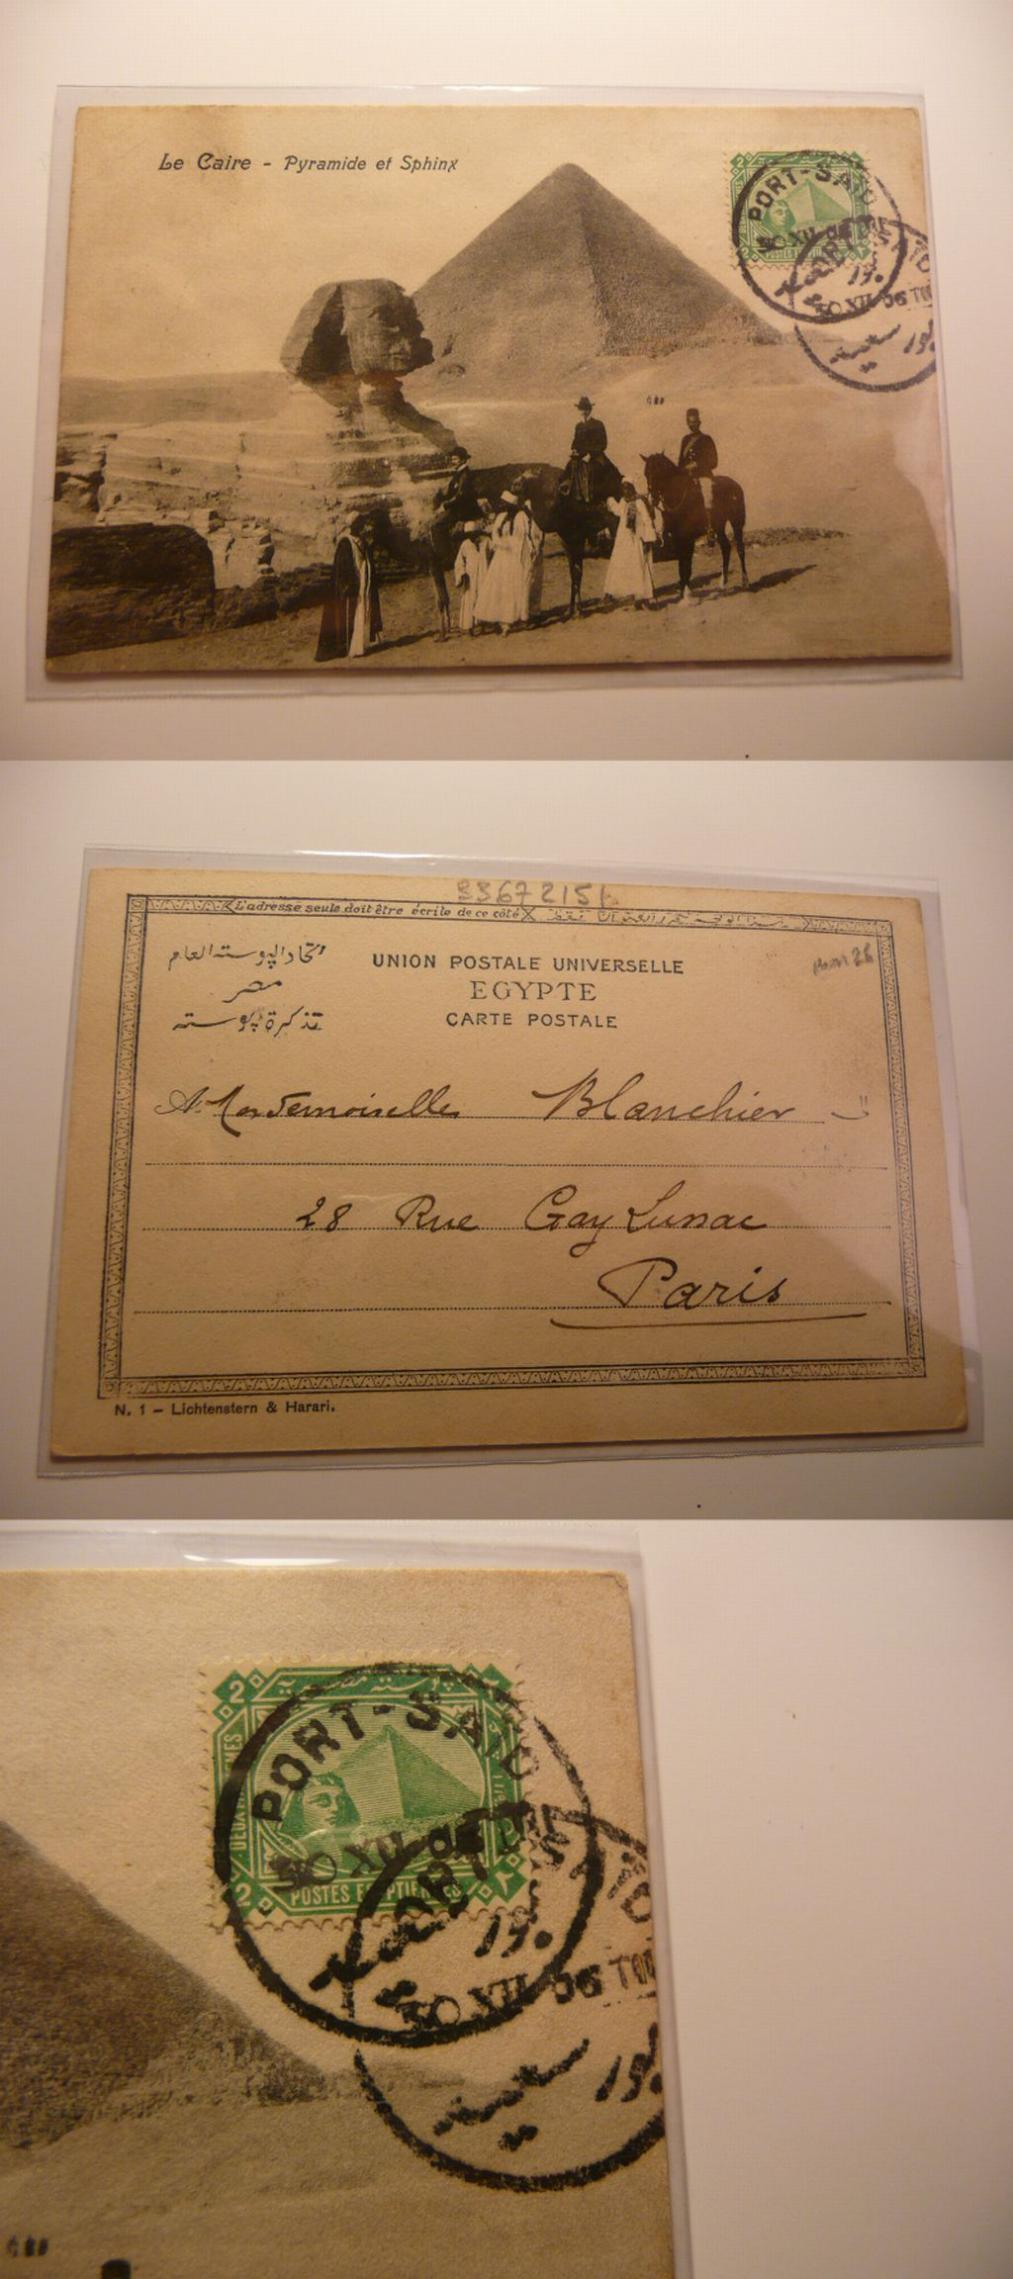 Le Caire - Pyramide et Sphinx
2
PORT-SAID
30 XII 06
POSTES EGYPTIENNES
30 XII 06 T
سعيد
33672151
L'adresse seule doit être écrite de ce côté
اتحاد البوسته العام
مصر
تذكرة بوسته
UNION POSTALE UNIVERSELLE
EGYPTE
CARTE POSTALE
A Mesdemoiselles Blanchier
28 Rue Gay Lussac
Paris
N. 1 – Lichtenstern & Harari.
2
PORT-SAID
30 XII 06
2
POSTES EGYPTIENNES
بور
30 XII 06
سعيد
بور